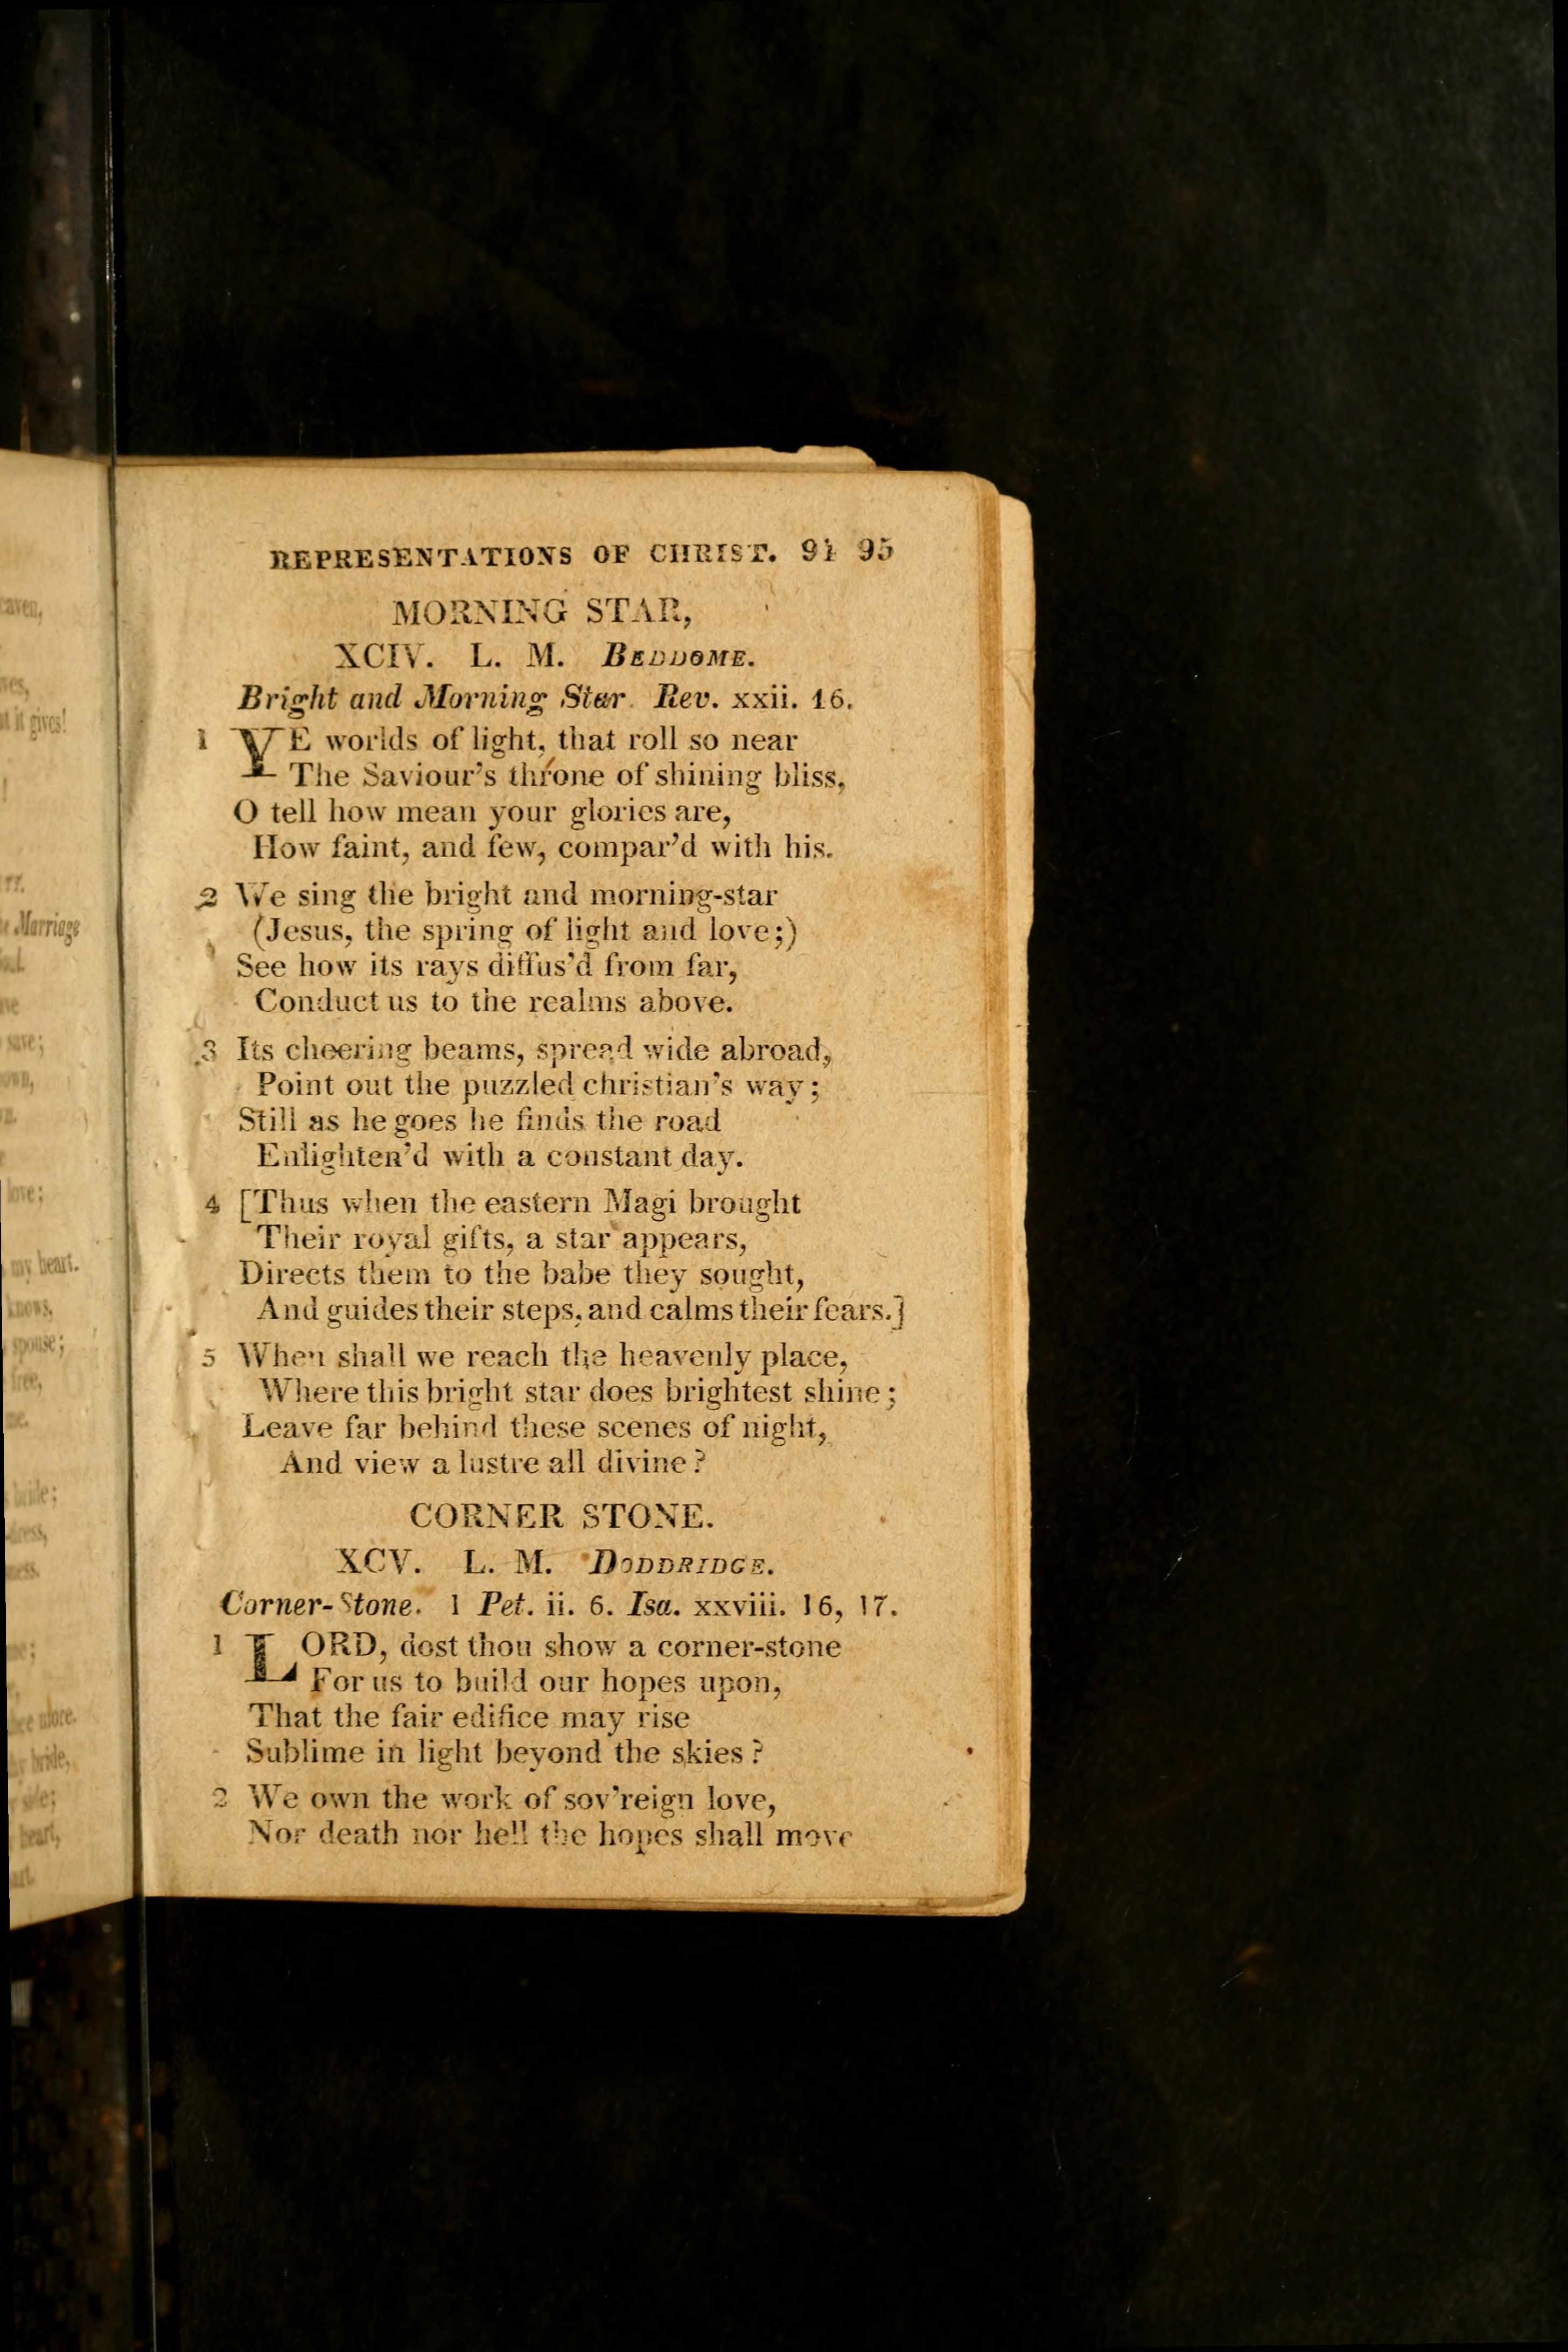 REPRESENTATIONS OF CHRIST. 94 95
MORNING STAR,
XCIV. L. M. BEDDOME.
Bright and Morning Star. Rev. xxii. 16.
1 YE worlds of light, that roll so near
The Saviour's throne of shining bliss,
O tell how mean your glories are,
How faint, and few, compar'd with his.
2 We sing the bright and morning-star
(Jesus, the spring of light and love;)
See how its rays diffus'd from far,
Conduct us to the realms above.
3 Its cheering beams, spread wide abroad,
Point out the puzzled christian's way;
Still as he goes he finds the road
Enlighten'd with a constant day.
4 [Thus when the eastern Magi brought
Their royal gifts, a star appears,
Directs them to the babe they sought,
And guides their steps, and calms their fears.]
5 When shall we reach the heavenly place,
Where this bright star does brightest shine;
Leave far behind these scenes of night,
And view a lustre all divine?
CORNER STONE.
XCV. L. M. DODDRIDGE.
Corner-Stone. 1 Pet. ii. 6. Isa. xxviii. 16, 17.
1 LORD, dost thou show a corner-stone
For us to build our hopes upon,
That the fair edifice may rise
Sublime in light beyond the skies?
2 We own the work of sov'reign love,
Nor death nor hell the hopes shall move